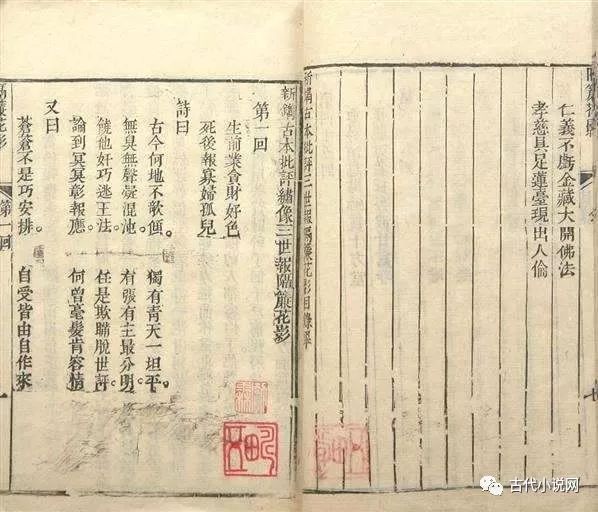 仁義不虧金藏大開佛法
孝慈具足蓮臺現出人倫
新鐫古本批評三世報隔簾花影目錄畢
新鐫古本批評繡像三世報隔簾花影
第一回
生前業貪財好色
死後報寡婦孤兒
詩曰
古今何地不欹傾。 獨有青天一坦平。
無臭無聲疑混沌。 有張有主最分明。
饒他奸巧逃王法。 任是欺瞞脫世評。
論到冥冥彰報應。 何曾毫髮肯容情
又曰
蒼蒼不是巧安排。 自受皆由自作來
隔簾花影 第一回
古代小说网